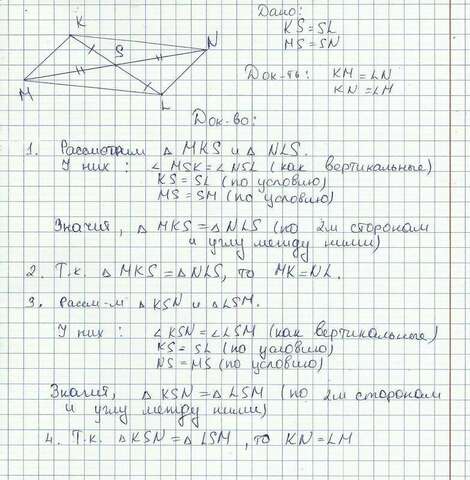 K
S
N
M
L
Дано:
KS = SL
MS = SN
Док-ть: KM = LN
KN = LM
Док-во:
1. Рассмотрим △ MKS и △ NLS.
У них: ∠ MSK = ∠ NSL (как вертикальные)
KS = SL (по условию)
MS = SM (по условию)
Значит, △ MKS = △ NLS (по 2м сторонам
и углу между ними)
2. Т.к. △ MKS = △ NLS, то MK = NL.
3. Рассм-м △ KSN и △ LSM.
У них: ∠ KSN = ∠ LSM (как вертикальные)
KS = SL (по условию)
NS = MS (по условию)
Значит, △ KSN = △ LSM (по 2м сторонам
и углу между ними)
4. Т.к. △ KSN = △ LSM, то KN = LM